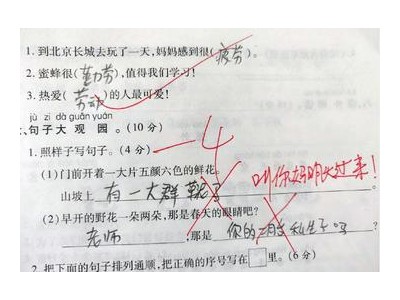 1. 到北京长城去玩了一天,妈妈感到很(疲劳)。
2. 蜜蜂很(勤劳),值得我们学习!
3. 热爱(劳动)的人最可爱!
jù zi dà guān yuán
、句子大观园。(10分)
1. 照样子写句子。(4分) -4
(1)门前开着一大片五颜六色的鲜花。
山坡上 有一大群 叫你妈明天过来!
(2)早开的野花一朵两朵,那是春天的眼睛吧?
老师,那是 你的 私生子吗?
2. 把下面的句子排列通顺,把正确的序号写在□里。(6分)